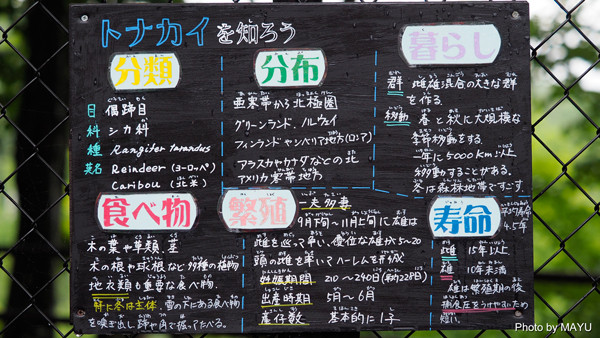 トナカイを知ろう
分類
目 偶蹄目
科 シカ科
種 Rangifer tarandus
英名 Reindeer (ヨーロッパ)
Caribou (北米)
分布
亜寒帯から北極圏
グリーンランド、ノルウェイ
フィンランドやシベリア地方(ロシア)
アラスカやカナダなどの北
アメリカ寒帯地域
暮らし
群 雌雄混合の大きな群
を作る。
移動 春と秋に大規模な
季節移動をする。
一年に5000km以上
移動することがある。
冬は森林地帯ですごす。
食べ物
木の葉や草類、茎
木の根や球根など多種の植物
地衣類も重要な食べ物。
特に冬は主体。雪の下にある食べ物
を嗅ぎ出し蹄や角で掘ってたべる。
繁殖
一夫多妻
9月下旬〜11月上旬に雄は
雌を巡って争い、優位な雄が5〜20
頭の雌を率いてハーレムを形成
妊娠期間 210〜240日(約228日)
出産時期 5月〜6月
産仔数 基本的に1子
寿命
平均寿命
4.5年
雌 15年以上
雄 10年未満
雄は繁殖期の後
短い。
Photo by MAYU